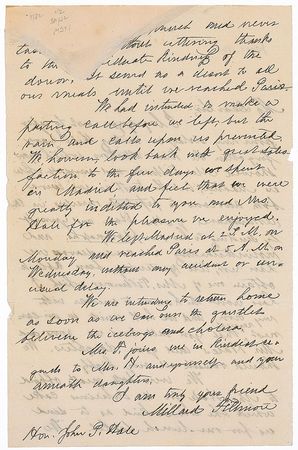 much and never
without uttering thanks
to the kindness of the
donor. It served as a desert to all
our meals until we reached Paris.
We had intended to make a
parting call before we left, but the
rain and calls upon us prevented.
We however, look back with great satis-
faction to the few days we spent
in Madrid, and feel that we were
greatly indebted to you and Mrs.
Hale for the pleasure we enjoyed.
We left Madrid at 2 P.M. on
Monday and reached Paris at 5 A.M. on
Wednesday, without any accident or
delay.
We are intending to return home
as soon as we can run the gauntlet
between the icebergs and cholera.
Mrs. F. joins me in kindest re-
gards to Mrs. H. and yourself and your
daughters,
I am truly your friend
Millard Fillmore
Hon. John P. Hale